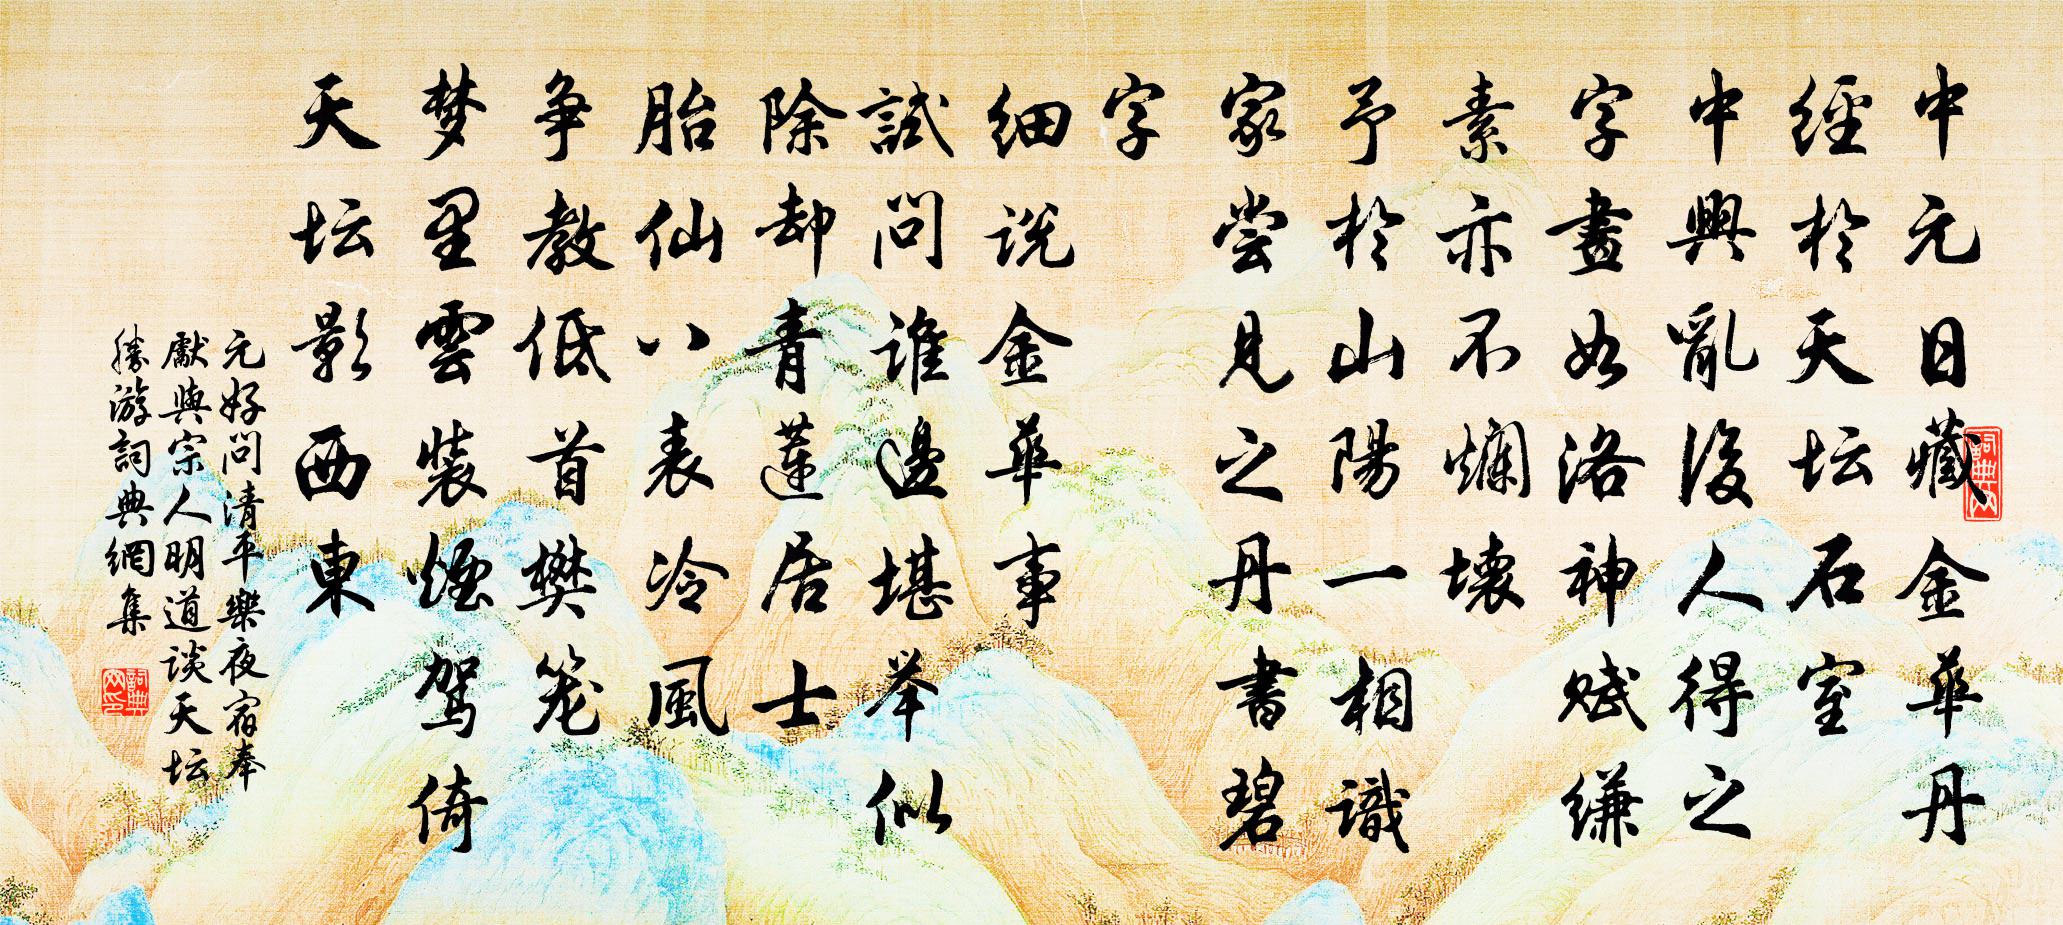 中元日藏金華丹
經於天坛石室
中興亂後人得之
字畫如洛神賦縑
素亦不爛壞
予於山陽一相識
家尝見之丹書碧
字
细説金華事
試問誰邊堪举似
除却青蓮居士
胎仙八表冷風
争教低首樊笼
梦里雲裝煙駕倚
天坛影西東
元好问清平樂夜宿奉
獻與宗人明道谈天坛
勝游詞典網集
詞典网
詞典网印